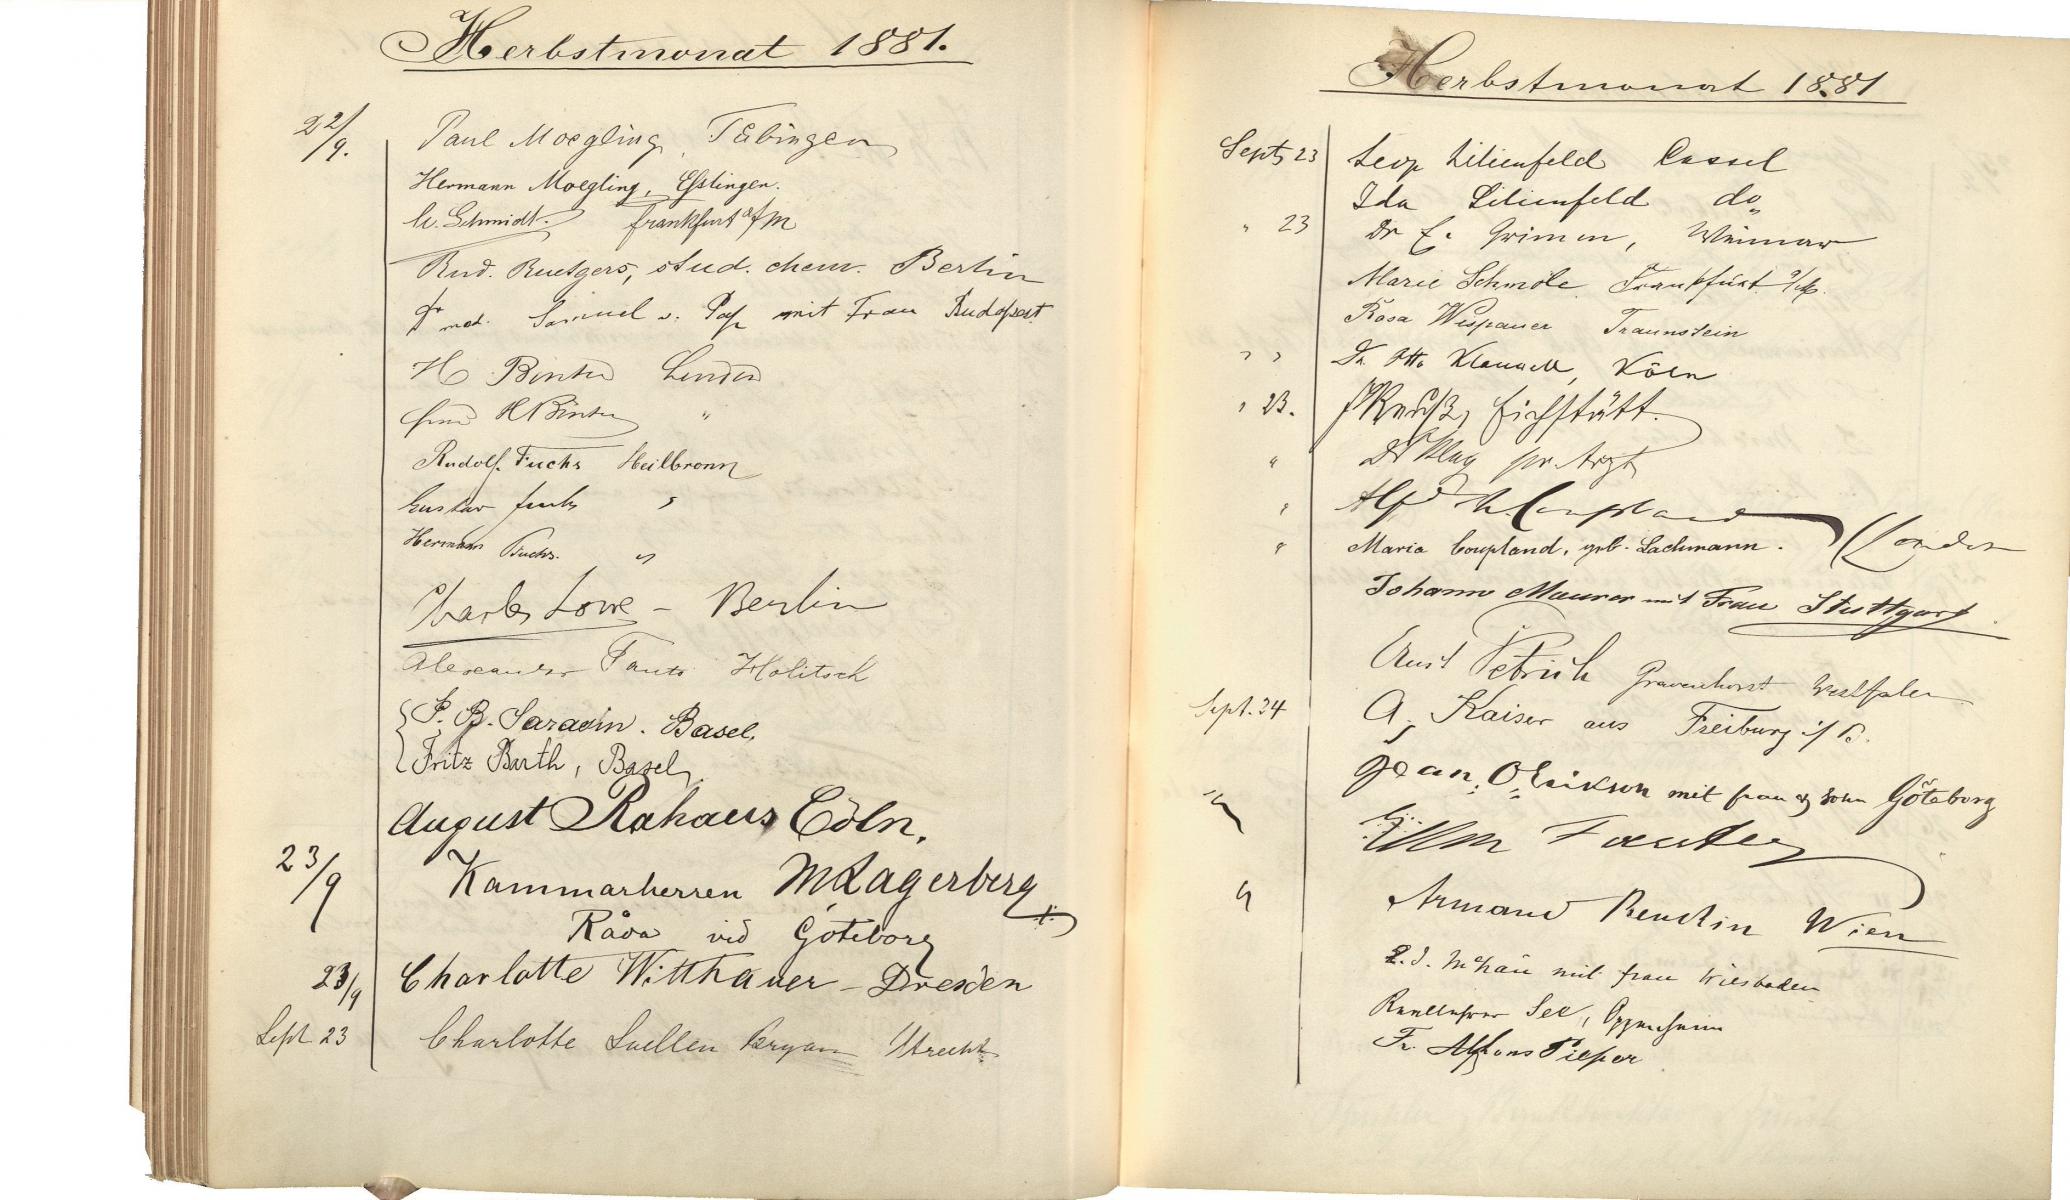 Herbstmonat 1881.
22/9. Paul Moegling, Tübingen
Hermann Moegling, Eßlingen.
Schmidt. Frankfurt a/M
Rud. Ruetgers, stud. chem. Berlin
Dr med. Samuel v. mit Frau Budapest
H
H
Rudolf Fuchs Heilbronn
Gustav Fuchs "
Hermann Fuchs. "
Charles Lowe – Berlin
Alexander Holitsch
P. B. Sarasin. Basel,
Fritz Barth, Basel,
August Rahaus Cöln.
23/9 Kammarherren M Lagerberg
Råda vid Göteborg
23/9 Charlotte Witthauer – Dresden
Sept 23 Charlotte Suellen Bryan Utrecht.
Herbstmonat 1881
Sept 23 Leop Lilienfeld Cassel
Ida Lilienfeld do
" 23 Dr E. Grimm, Weimar
Marie Schmöle Frankfurt a/M.
Rosa Wispauer Traunstein
" " Dr. Otto Köln
" 23. Eichstätt.
" Dr pr. Arzt
" Alfd Coupland
" Maria Coupland, geb. Lachmann. (London
Johann Maurer mit Frau Stuttgart
Petrich Gravenhorst Westfalen
Sept. 24 A. Kaiser aus Freiburg i/B.
Jean, O, Erikson mit frau & sohn Göteborg
"
" Armand Wien
mit frau Wiesbaden
See, Oppenheim
Fr. Alfons Pieper